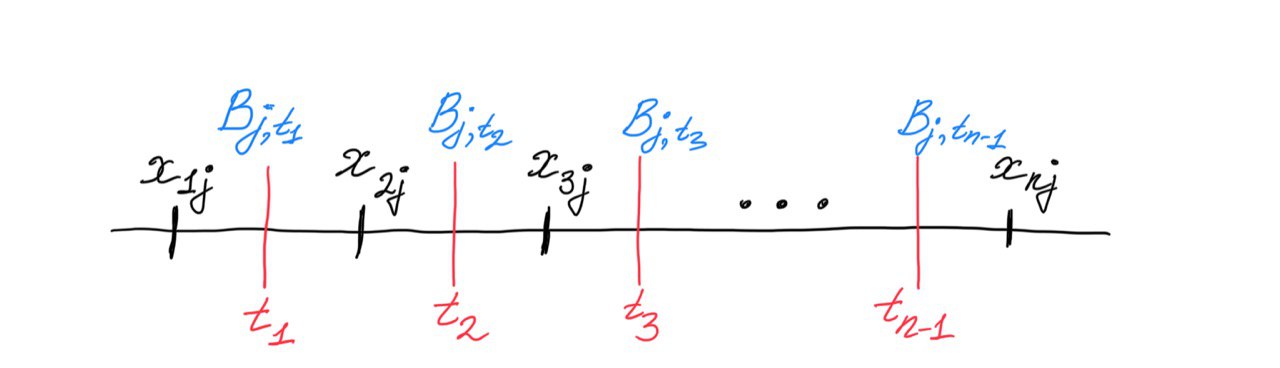 B_{j,t_1} B_{j,t_2} B_{j,t_3} B_{j,t_{n-1}}
x_{1j} x_{2j} x_{3j} ... x_{nj}
t_1 t_2 t_3 t_{n-1}